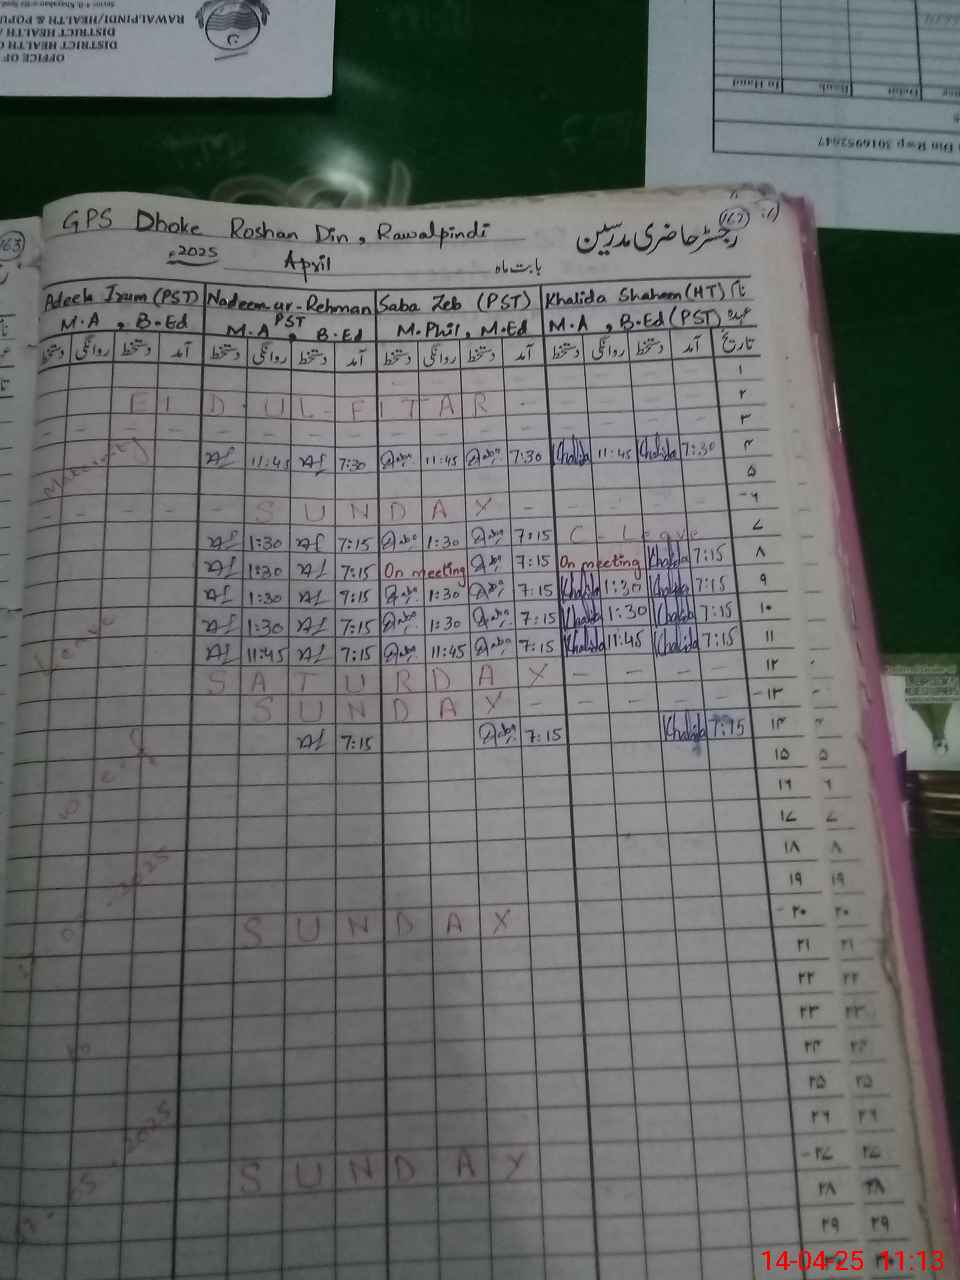 OFFICE OF
DISTRICT HEALTH
DISTRICT HEALTH
RAWALPINDI/HEALTH & POPU
In Hand Bank Debit
Din R=p 3016952647
163
162
GPS Dhoke Roshan Din, Rawalpindi
رجسٹر حاضری مدرسین
2025 April بابت ماہ
Adeela Irum (PST) Nadeem-ur-Rehman Saba Zeb (PST) Khalida Shaheen (HT) نام
M.A , B.Ed PST M.A , B.Ed M.Phil, M.Ed M.A , B.Ed (PST) عہدہ
دستخط روانگی دستخط آمد دستخط روانگی دستخط آمد دستخط روانگی دستخط آمد دستخط روانگی دستخط آمد تاریخ
۱
EID-UL-FITAR - ۲
- - - - - - - - - - ۳
11:45 7:30 11:45 7:30 Khalida 11:45 Khalida 7:30 ۴
۵
- - - - SUNDAY - - - - ۶
1:30 7:15 1:30 7:15 C-Leave ۷
1:30 7:15 On meeting 7:15 On meeting Khalida 7:15 ۸
1:30 7:15 1:30 7:15 Khalida 1:30 Khalida 7:15 ۹
1:30 7:15 1:30 7:15 Khalida 1:30 Khalida 7:15 ۱۰
11:45 7:15 11:45 7:15 Khalida 11:45 Khalida 7:15 ۱۱
SATURDAY - - - - ۱۲
SUNDAY - - - - ۱۳
7:15 7:15 Khalida 7:15 ۱۴
۱۵ ۵
۱۶ ۶
۱۷ ۷
۱۸ ۸
۱۹ ۱۹
SUNDAY ۲۰ ۲۰
۲۱ ۲۱
۲۲ ۲۲
۲۳ ۲۳
۲۴ ۲۴
۲۵ ۲۵
۲۶ ۲۶
SUNDAY ۲۷ ۲۷
۲۸ ۲۸
۲۹ ۲۹
Maternity
Leave
2025
2025
14-04-25 11:13